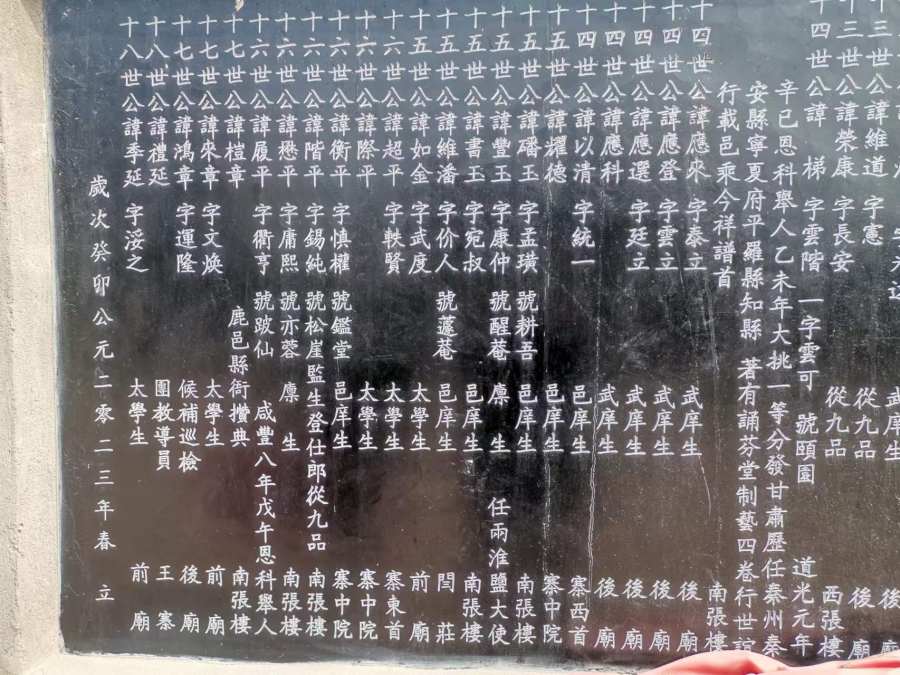 武庠生 後廟
十三世公諱維道 字憲 從九品 後廟
十三世公諱榮康 字長安 從九品 西張樓
十四世公諱 梯 字雲階 一字雲可 號頤園 道光元年
辛巳恩科舉人乙未年大挑一等分發甘肅歷任秦州秦
安縣寧夏府平羅縣知縣 著有誦芬堂制藝四卷行世誼
行載邑乘今祥譜首 南張樓
十四世公諱應來 字泰立 武庠生 後廟
十四世公諱應登 字雲立 武庠生 後廟
十四世公諱應選 字廷立 武庠生 後廟
十四世公諱應科 武庠生 後廟
十四世公諱以清 字統一 邑庠生 寨西首
十五世公諱耀德 邑庠生 寨中院
十五世公諱璠玉 字孟璜 號耕吾 邑庠生 南張樓
十五世公諱豐玉 字康仲 號醒菴 廩生 任兩淮鹽大使
十五世公諱書玉 字宛叔 邑庠生 南張樓
十五世公諱維潘 字价人 號蘧菴 邑庠生 閆莊
十五世公諱如金 字武度 太學生 前廟
十六世公諱超平 字軼賢 太學生 寨東首
十六世公諱際平 太學生 寨中院
十六世公諱衡平 字慎權 號鑑堂 邑庠生 寨中院
十六世公諱階平 字錫純 號松崖監生登仕郎從九品 南張樓
十六世公諱懋平 字庸熙 號亦蓉 廩生 南張樓
十六世公諱履平 字衢亨 號跛仙 咸豐八年戊午恩科舉人
十七世公諱榿章 鹿邑縣衙攢典 南張樓
十七世公諱來章 字文煥 太學生 前廟
十七世公諱鴻章 字運隆 候補巡檢 後廟
十八世公諱禮延 團教導員 王寨
十八世公諱季延 字浽之 太學生 前廟
歲次癸卯公元二零二三年春 立